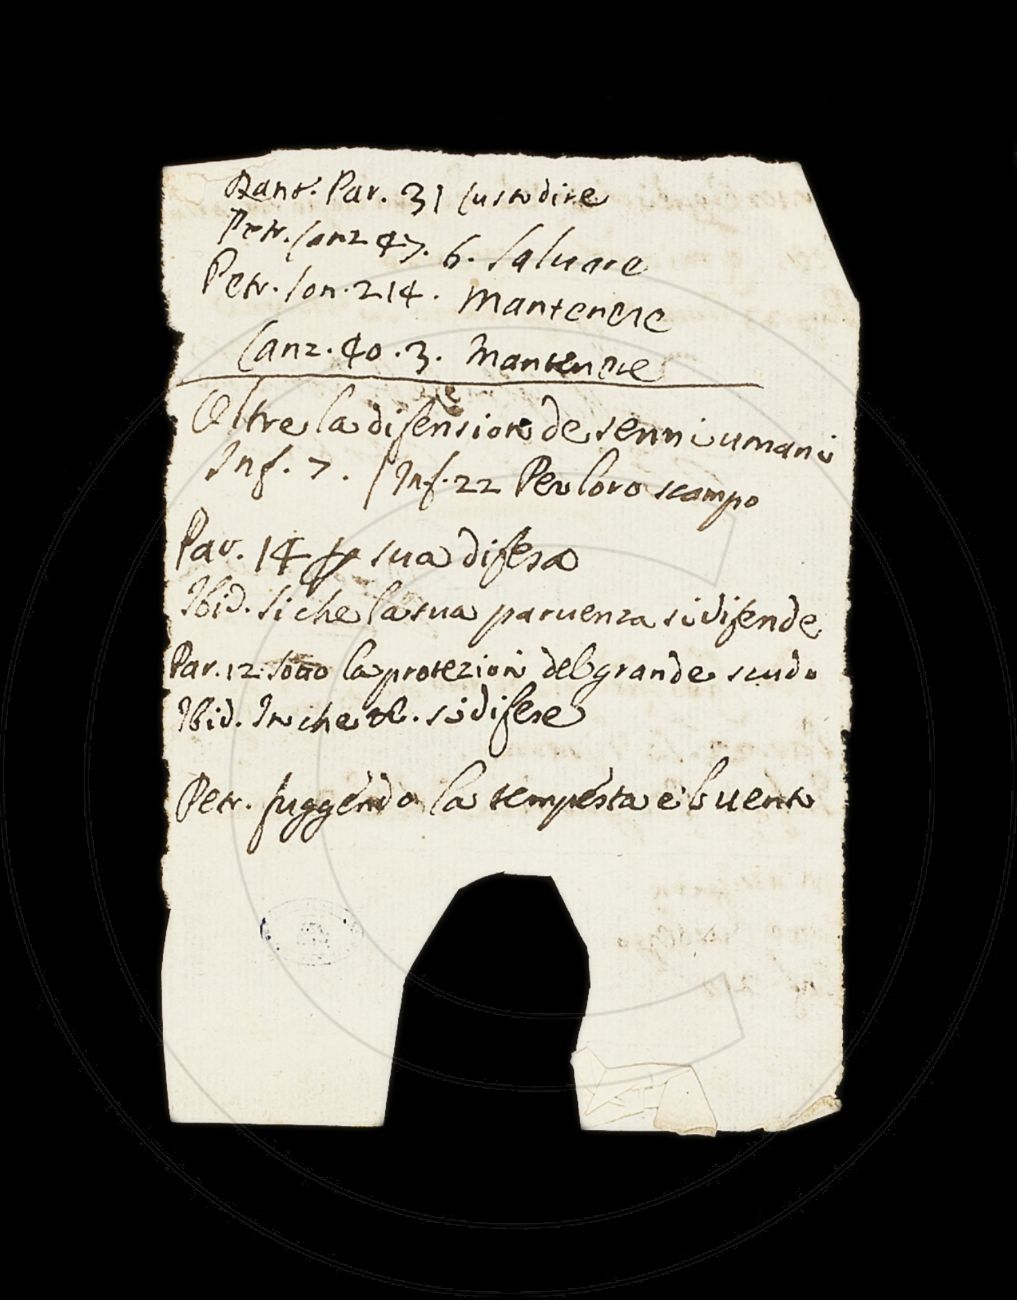 Dant. Par. 31 Custodire
Petr. Canz 47. 6. Saluare
Petr. Son. 214. Mantenere
Canz. 40. 3. Mantenere
Oltre la difension de senni umani
Inf. 7. / Inf. 22 Per loro scampo
Par. 14 p sua difesa
Ibid. Si che la sua paruenza si difende
Par. 12. Sotto la protezion del grande scudo
Ibid. In che si difese
Petr. fuggendo la tempesta e'l uento